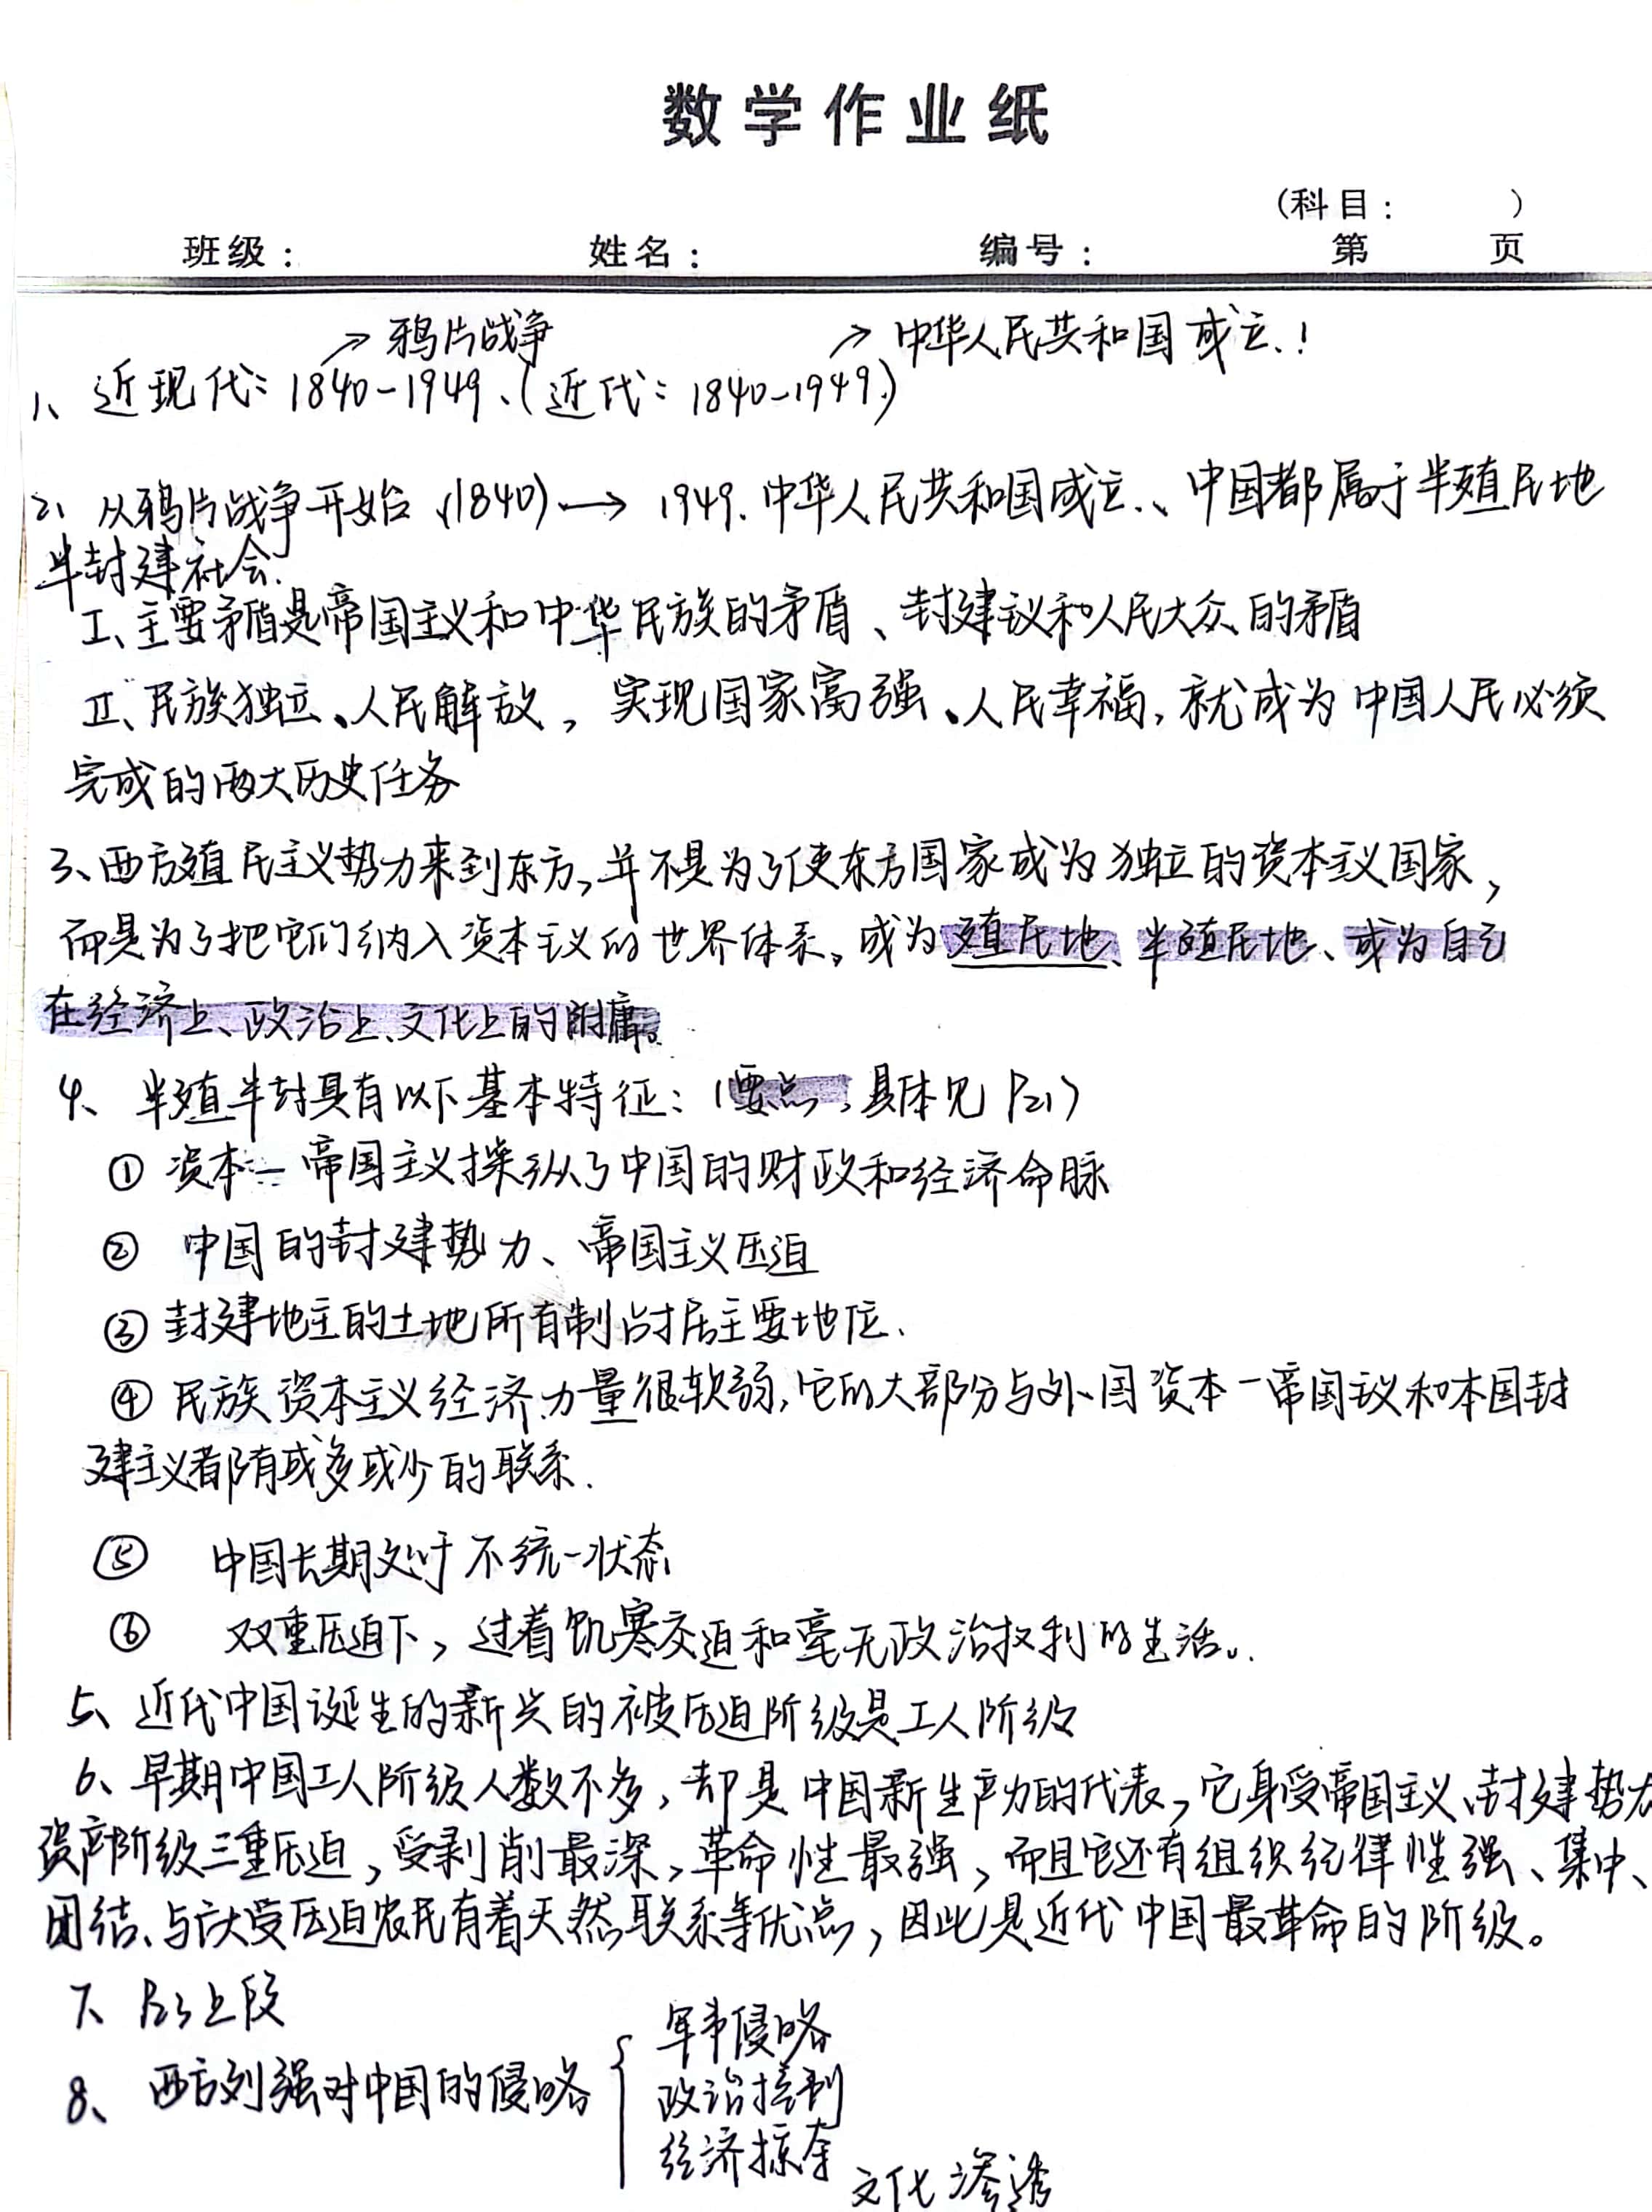 数学作业纸
(科目：　　)
班级：　　姓名：　　编号：　　第　　页
→鸦片战争　　→中华人民共和国成立.!
1、近现代：1840-1949、(近代：1840-1949.)
2、从鸦片战争开始(1840)→1949.中华人民共和国成立.、中国都属于半殖民地
半封建社会.
I、主要矛盾是帝国主义和中华民族的矛盾、封建主义和人民大众的矛盾
II、民族独立、人民解放，实现国家富强、人民幸福，就成为中国人民必须
完成的两大历史任务
3、西方殖民主义势力来到东方，并不是为了使东方国家成为独立的资本主义国家，
而是为了把它们纳入资本主义的世界体系，成为殖民地、半殖民地、或为自己
在经济上、政治上、文化上的附庸。
4、半殖半封具有以下基本特征：(要点，具体见P21)
① 资本-帝国主义操纵了中国的财政和经济命脉
② 中国的封建势力、帝国主义压迫
③ 封建地主的土地所有制占居主要地位.
④ 民族资本主义经济力量很软弱，它的大部分与外国资本-帝国主义和本国封
建主义都有或多或少的联系.
⑤ 中国长期处于不统一状态
⑥ 双重压迫下，过着饥寒交迫和毫无政治权利的生活。.
5、近代中国诞生的新兴的被压迫阶级是工人阶级
6、早期中国工人阶级人数不多，却是中国新生产力的代表，它身受帝国主义、封建势力
资产阶级三重压迫，受剥削最深，革命性最强，而且它还有组织纪律性强、集中、
团结、与广大受压迫农民有着天然联系等优点，因此是近代中国最革命的阶级。
7、P23上段
8、西方列强对中国的侵略{军事侵略
政治控制
经济掠夺
文化渗透